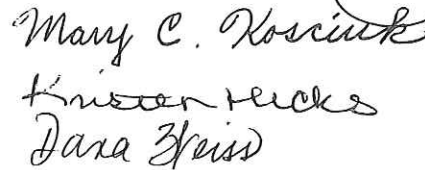 Mary C. Kosciuk
Kristen Hicks
Dana Weiss